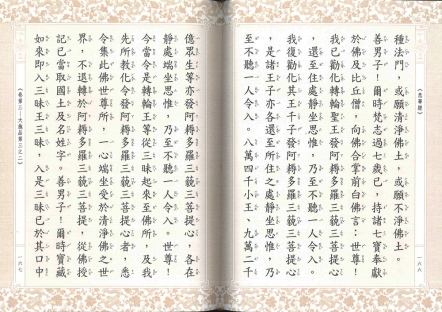 《悲華經》
種法門，或願清淨佛土，或願不淨佛土。
善男子！爾時梵志過七歲已，持諸七寶奉獻
於佛及比丘僧，向佛合掌前白佛言：世尊！
我已勸化轉輪聖王發阿耨多羅三藐三菩提心
，還至住處靜坐思惟，乃至不聽一人令入。
我復勸化其王千子發阿耨多羅三藐三菩提心
，是諸王子亦各還至所住之處靜坐思惟，乃
至不聽一人令入。八萬四千小王、九萬二千
一六六
億眾生等亦發阿耨多羅三藐三菩提心，各在
靜處端坐思惟，乃至不聽一人令入。世尊！
今當令是轉輪王等從三昧起來至佛所，及我
先所教化令發阿耨多羅三藐三菩提心者，悉
令集此佛世尊所，一心端坐受於清淨佛之世
界，不退轉於阿耨多羅三藐三菩提，從佛授
記已當取國土及名姓字。善男子！爾時寶藏
如來即入三昧王三昧，入是三昧已於其口中
《卷第三‧大施品第三之二》
一六七